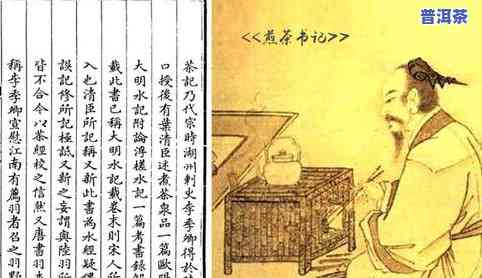 普洱茶
<<煎茶书记>>
茶記乃代宗時湖州刺史李季卿得於
口授後有葉清臣述煮茶泉品一篇歐
大明水記附論浮槎水記一篇考書錄
載此書已稱大明水記載卷末則宋人所
入也清臣所記稱又新此書為水經疑
誤記修所記極詆又新之妄謂與陸羽所
皆不合今以茶經校之信然又唐書
稱李季卿宣慰江南有薦羽者召之羽野